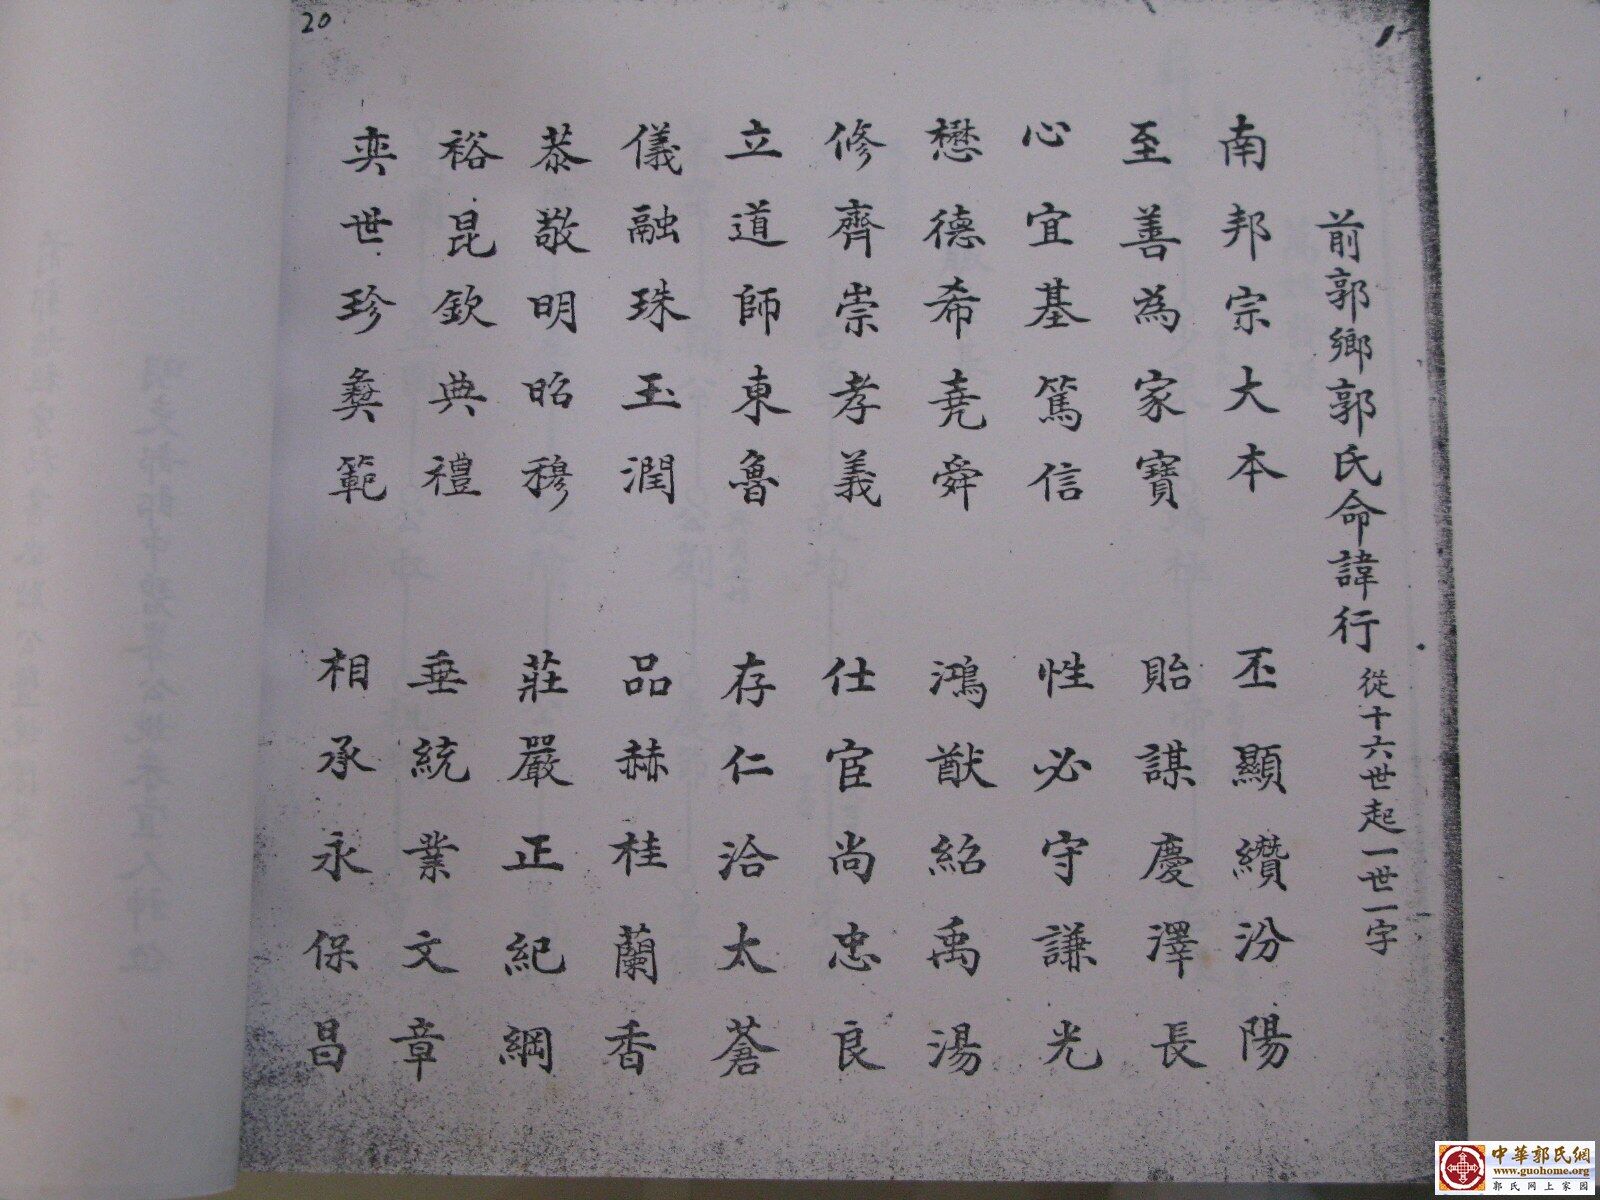 20
前郭鄉郭氏命諱行 從十六世起一世一字
南邦宗大本 丕顯纘汾陽
至善為家寶 貽謀慶澤長
心宜基篤信 性必守謙光
懋德希堯舜 鴻猷紹禹湯
修齊崇孝義 仕宦尚忠良
立道師東魯 存仁洽太蒼
儀融珠玉潤 品赫桂蘭香
恭敬明昭穆 莊嚴正紀綱
裕昆欽典禮 垂統業文章
奕世珍彝範 相承永保昌
中華郭氏網
www.guohome.org
郭氏网上家园